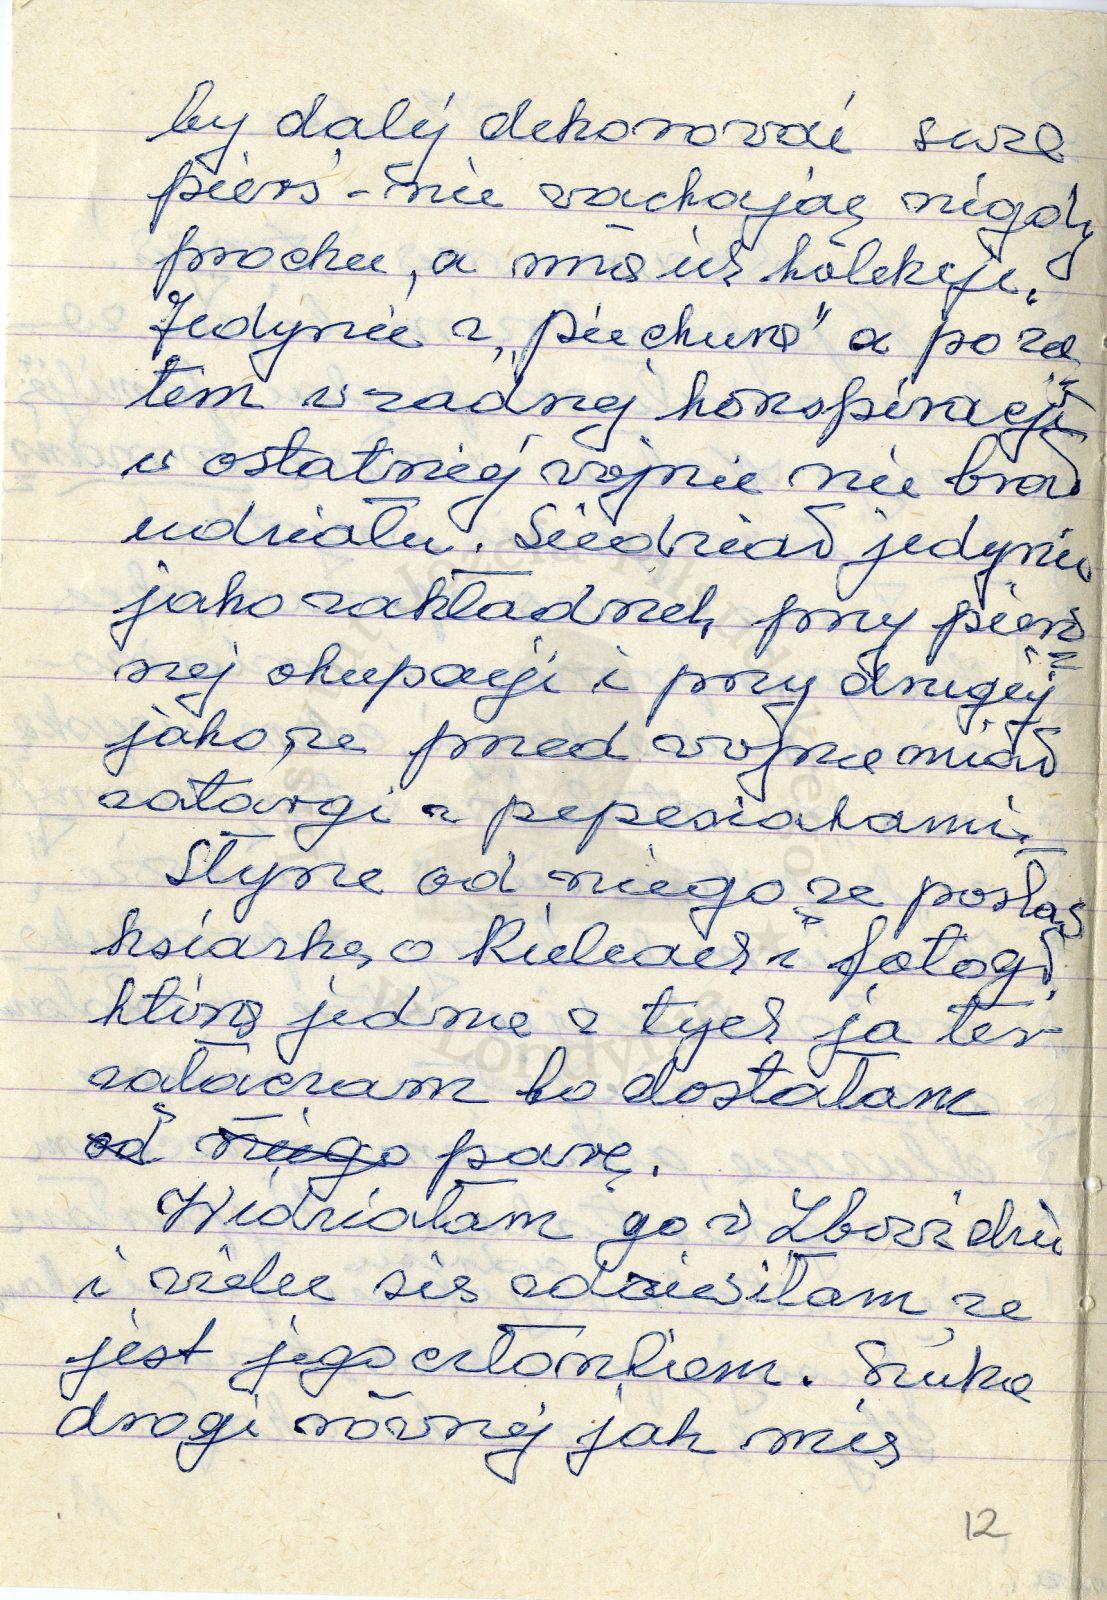 by dalej dekorować swe
pierś - nie wachając nigdy
prochu, a ma ich kolekcje.
Jedynie z "piechura" a poza
tem w żadnej konspiracji
w ostatniej wojnie nie brał
udziału. Siedział jedynie
jako zakładnik, przy pierw
nej okupacji i przy drugiej
jako, że przed wojną miał
zatargi z pepesiakami.
Słyszę od niego że posłał
książkę o Kielcach i fotogr.
którą jedną z tych ja też
załączam bo dostałam
od niego parę.
Widziałam go w Zbowidzie
i wielce się zdziwiłam, że
jest jego członkiem. Szuka
drogi równej jak mieć
12